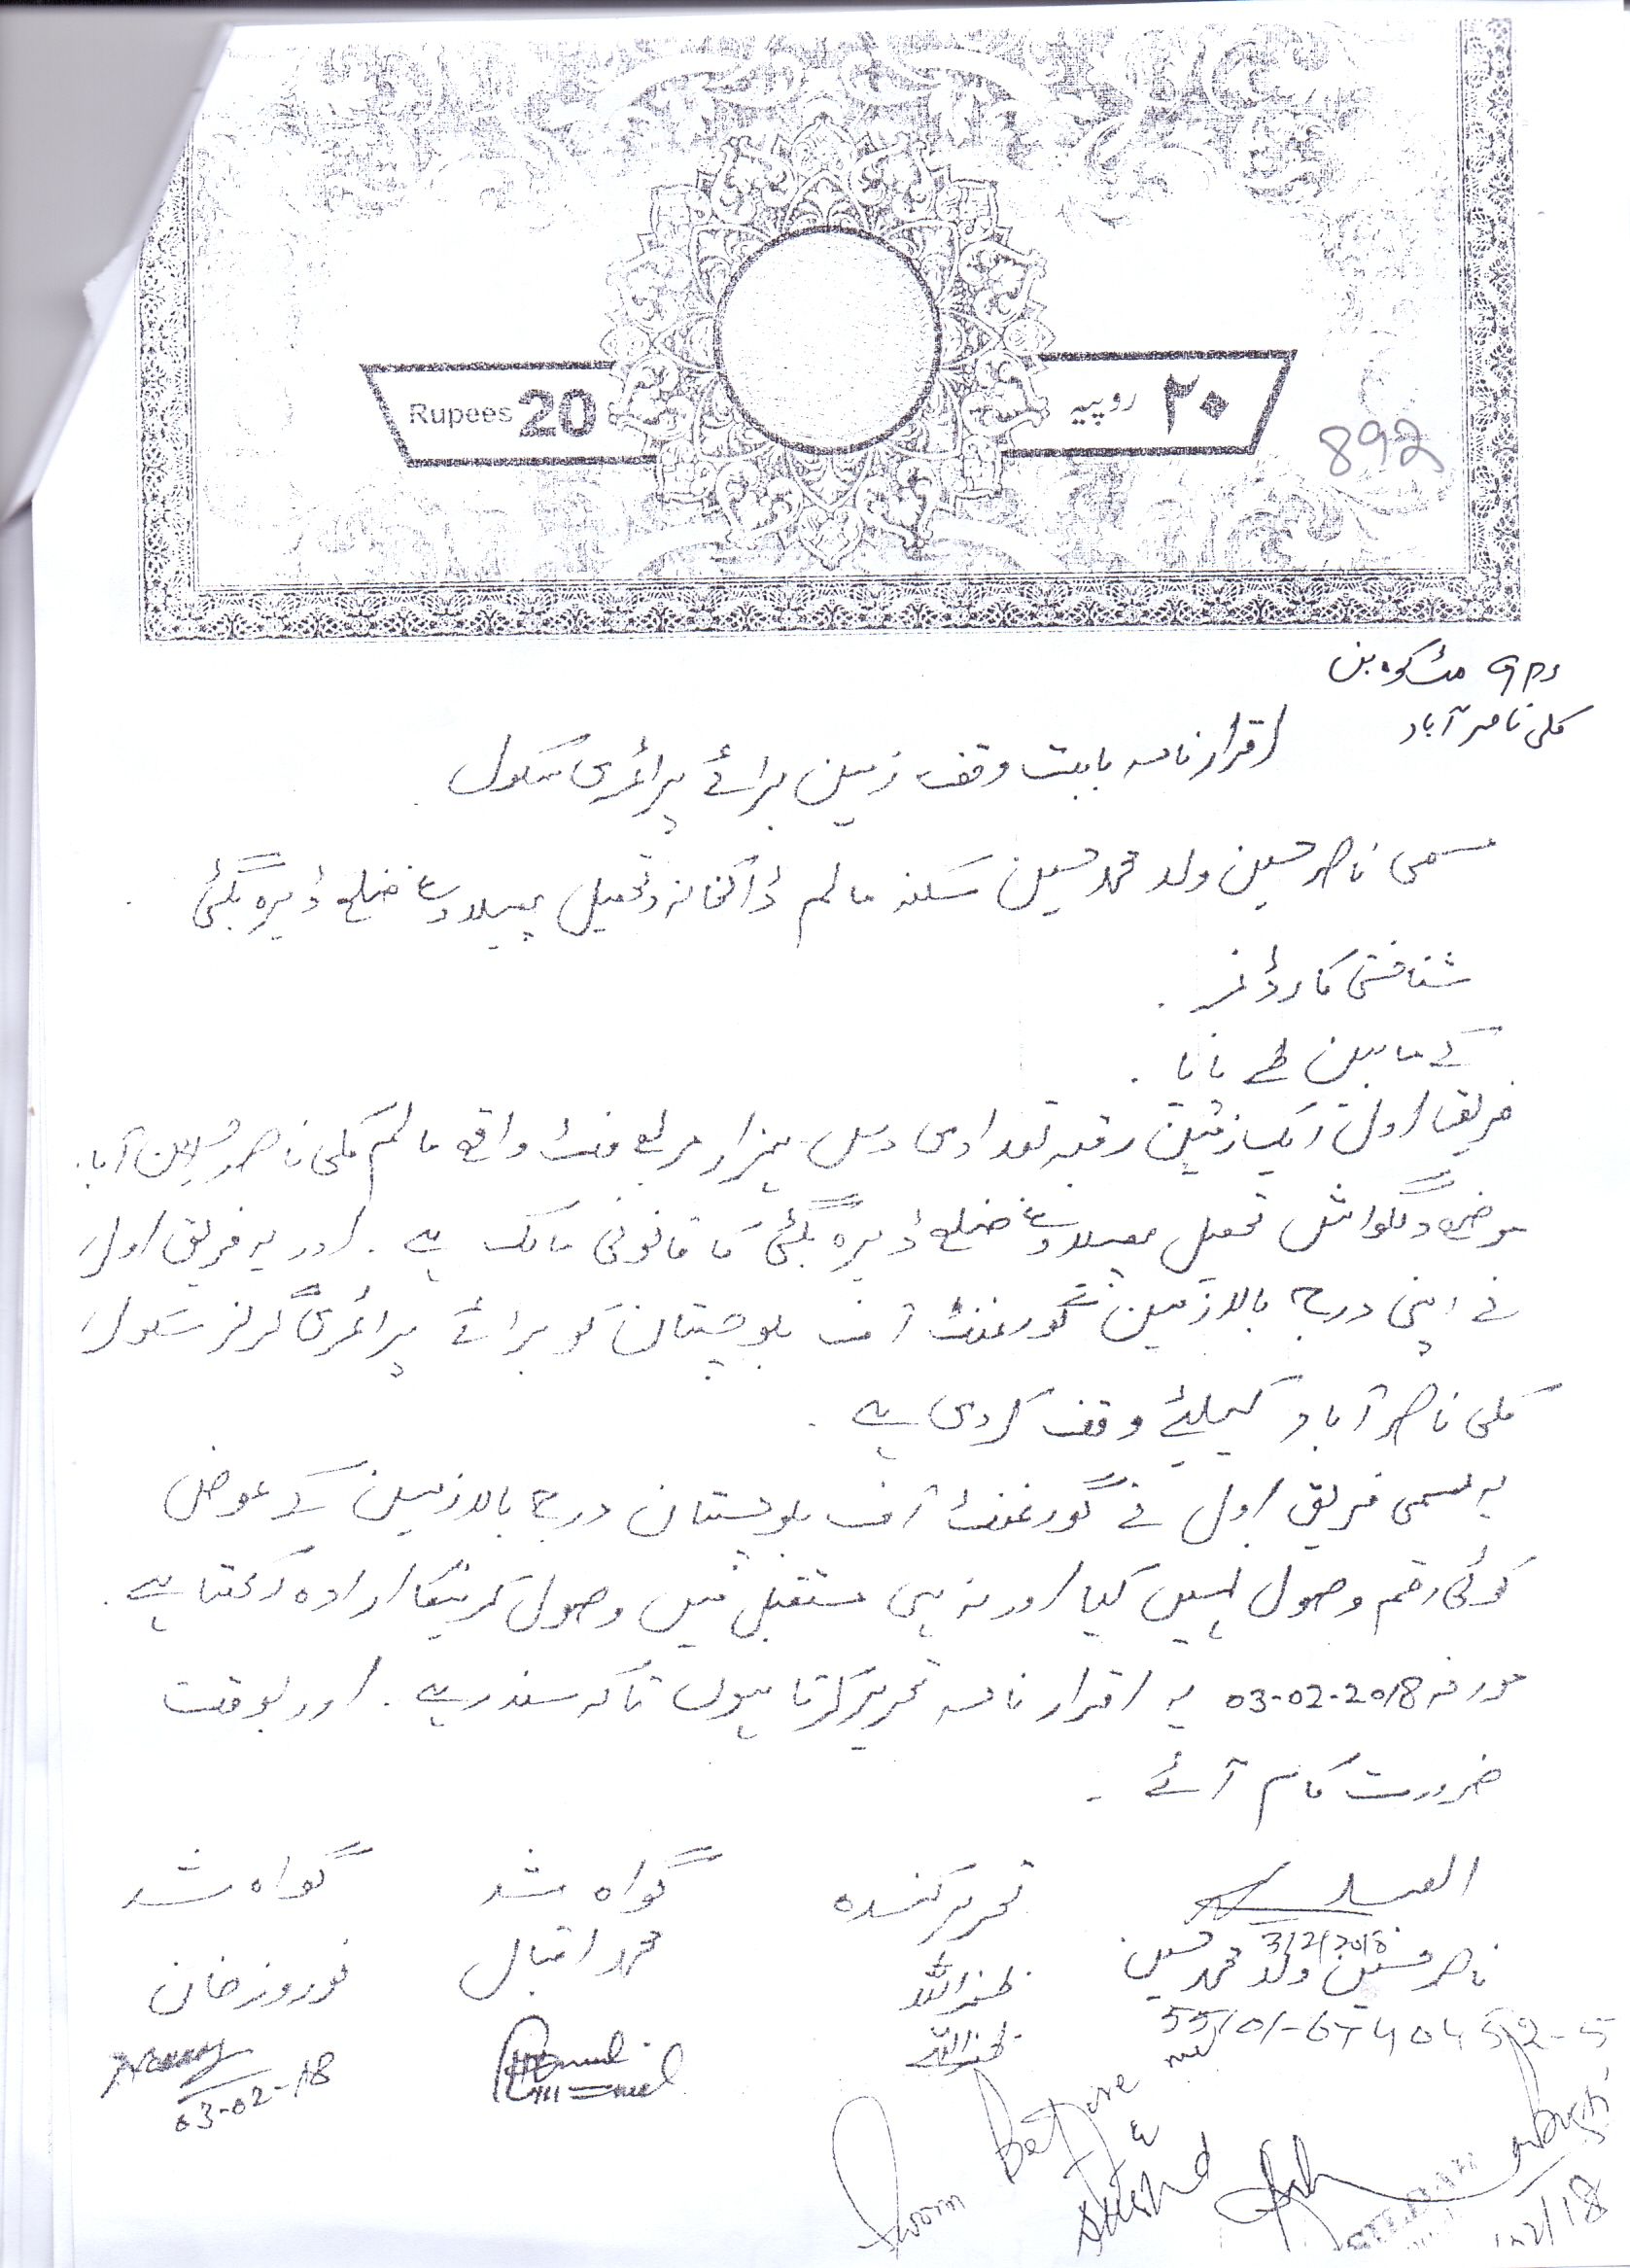 Rupees 20
۲۰ روپیہ
892
GPS مٹ کوہ بن
کلی ناصر آباد
اقرار نامہ بابت وقف زمین برائے پرائمری سکول
مسمی ناصر حسین ولد محمد حسین سکنہ مالم ڈاکخانہ وتحصیل پھیلاوغ ضلع ڈیرہ بگٹی
شناختی کارڈ نمبر
کے مابین طے پایا۔
فریق اول ایک زمین رقبہ تعدادی دس ہزار مربع فٹ واقع مالم کلی ناصر حسین آباد
موضع تحصیل پھیلاوغ ضلع ڈیرہ بگٹی کا قانونی مالک ہے۔ اور یہ فریق اول
نے اپنی درج بالا زمین گورنمنٹ آف بلوچستان کو برائے پرائمری گرلز سکول
کلی ناصر آباد کیلئے وقف کر دی ہے۔
یہ مسمی فریق اول نے گورنمنٹ آف بلوچستان درج بالا زمین کے عوض
کوئی رقم وصول نہیں کیا اور نہ ہی مستقبل میں وصول کرنیکا ارادہ رکھتا ہے۔
مورخہ 03-02-2018 یہ اقرار نامہ تحریر کرتا ہوں تاکہ سند رہے۔ اور بوقت
ضرورت کام آئے۔
العبد تحریر کنندہ گواہ شد گواہ شد
3/2/2018
ناصر حسین ولد محمد حسین ظفر اللہ محمد اقبال نوروز خان
55101-6740452-5
ظفر اللہ
03-02-18
Sworn Before me